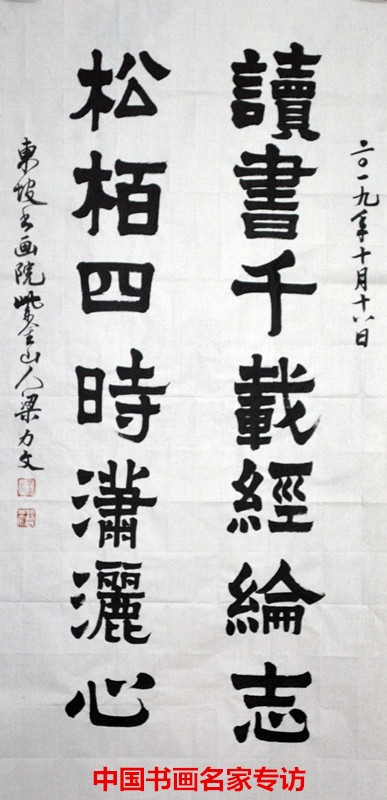 二〇一九年十月十八日
讀書千載經綸志
松栢四時瀟灑心
東坡书画院紫金山人梁力文
中国书画名家专访